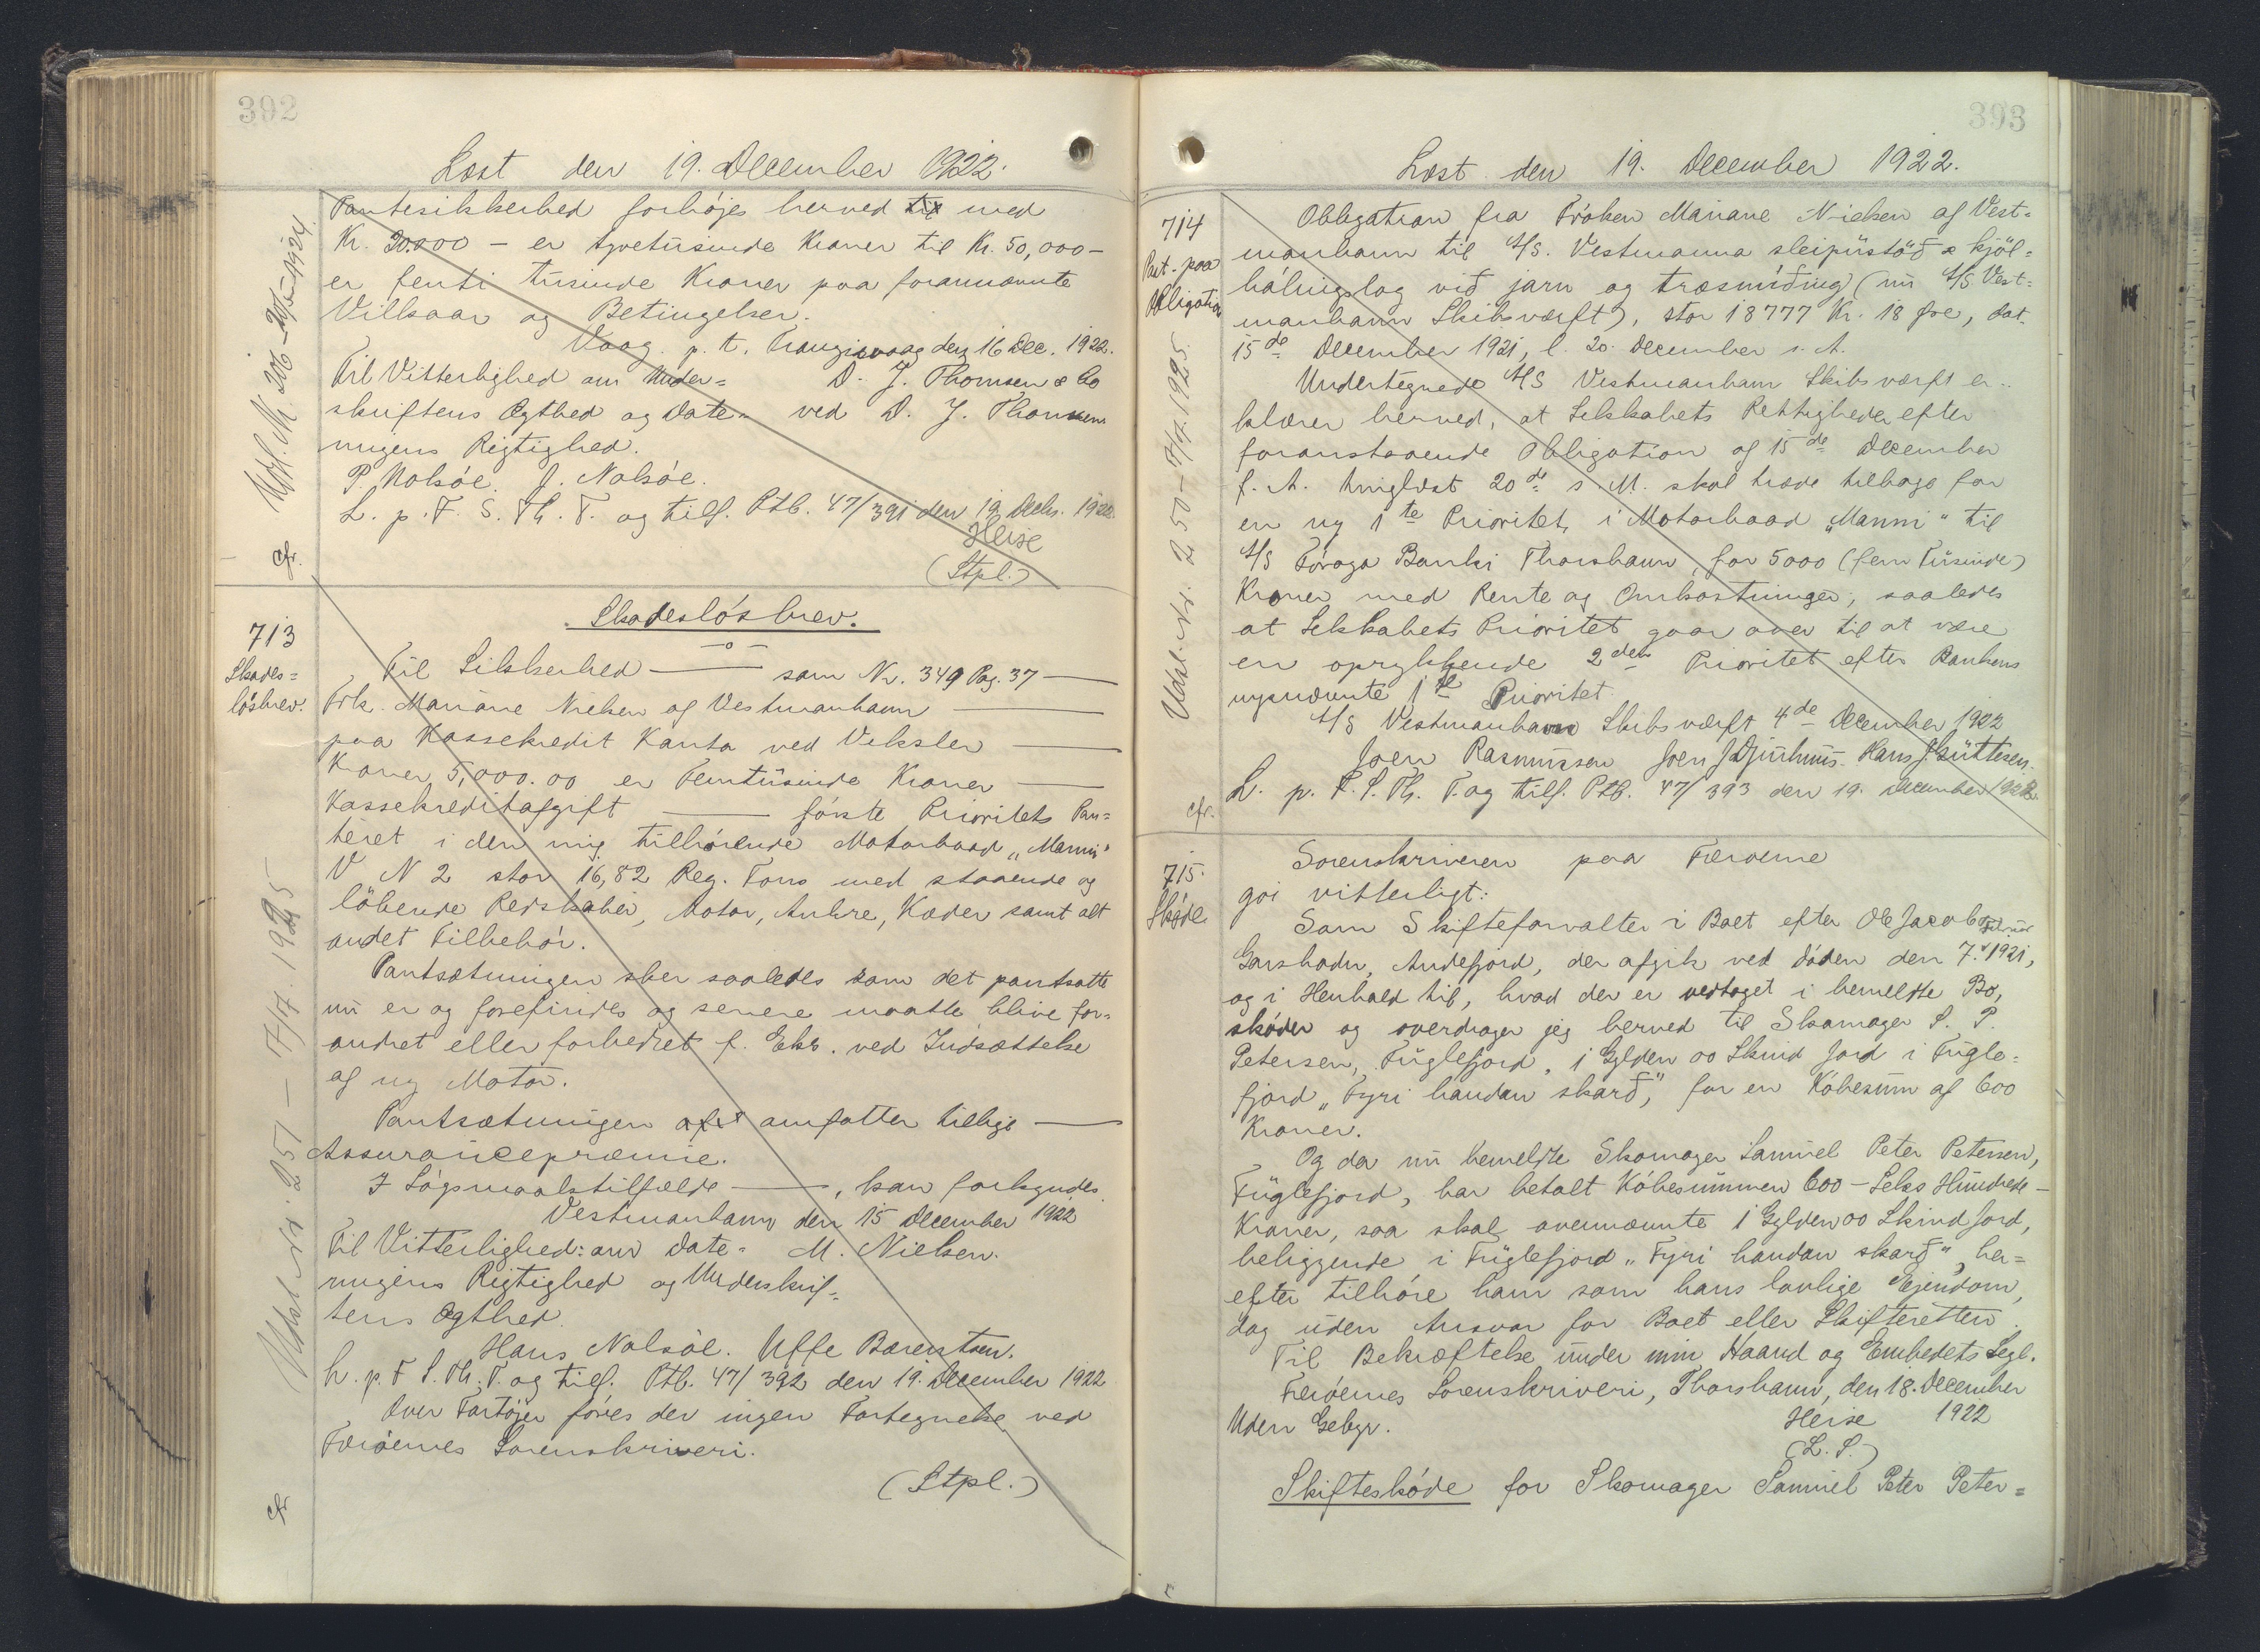 392
Læst den 19. December 1922.
Pantesikkerhed forhøjes herved til med
Kr. 20.000 – er tyvetusinde Kroner til Kr. 50,000 –
er femti tusinde Kroner paa forannævnte
Vilkaar og Betingelser.
Vaag p. t. Trangisvaag den 16 Dec. 1922.
Til Vitterlighed om Under= D. J. Thomsen & Co
skriftens Ægthed og Date= ved D. J. Thomsen
ringens Rigtighed.
P. Nolsøe. J. Nolsøe.
L. p. F. S. Th. T. og tilf. Ptb. 47/391 den 19. Decbr. 1922.
Heise
(Stpl.)
cfr.
713
Skades=
løsbrev.
Skadesløsbrev.
Til Sikkerhed — som Nr. 349 Pag. 37 —
Frk. Mariane Nielsen af Vestmanhavn —
paa Kassekredit Konto ved Veksler —
Kroner 5,000.00 er Femtusinde Kroner —
Kassekreditafgift — første Prioritets Pan=
teret i den mig tilhørende Motorbaad "Manni"
V N 2 stor 16,82 Reg. Tons med staaende og
løbende Redskaber, Motor, Ankre, Kæder samt alt
andet Tilbehør.
Pantsætningen sker saaledes som det pantsatte
nu er og forefindes og senere maatte blive for=
andret eller forbedret f. Eks. ved Indsættelse
af ny Motor.
Pantsætningen omfatter tillige —
Assurancepræmie.
I Søgsmaalstilfælde —, kan forkyndes.
Vestmanhavn den 15 December 1922
Til Vitterlighed: om Date= M. Nielsen.
ringens Rigtighed og Underskrif=
tens Ægthed.
Hans Nolsøe. Uffe Bærentsen.
L. p. F. S. Th. T. og tilf. Ptb. 47/392 den 19. December 1922
Over Fartøjer føres der ingen Fortegnelse ved
Færøernes Sorenskriveri.
(Stpl.)
Udsl. Nr. 251 – 7/7. 1925
cfr
393
Læst den 19. December 1922.
714
Paat. paa
Obligation
Obligation fra Frøken Mariane Nielsen af Vest=
manhavn til A/S. Vestmanna sleipistøð & kjøl=
halingslag við jarn og træsmiðing (nu A/S Vest=
manhavn Skibsværft), stor 18777 Kr. 18 Øre, dat.
15de December 1921, l. 20. December s. A.
Undertegnede A/S Vestmanhavn Skibsværft er=
klærer herved, at Selskabets Rettigheder efter
foranstaaende Obligation af 15de December
f. A. tinglæst 20de s. M. skal træde tilbage for
en ny 1te Prioritet i Motorbaad "Manni" til
A/S Føroya Banki Thorshavn, for 5000 (fem Tusinde)
Kroner med Rente og Omkostninger, saaledes
at Selskabets Prioritet gaar over til at være
en oprykkende 2den Prioritet efter Bankens
nysnævnte 1te Prioritet.
A/S Vestmanhavn Skibsværft 4de December 1922
Joen Rasmussen Joen J Djurhuus. Hans J. Guttesen.
L. p. F. S. Th. T. og tilf. Ptb. 47/393 den 19. December 1922.
Udsl. Nr. 250 – 7/7. 1925.
cfr.
715.
Skøde
Sorenskriveren paa Færøerne
gør vitterligt:
Som Skifteforvalter i Boet efter Ole Jacob
Garshodn, Andefjord, der afgik ved døden den 7. Februar 1921,
og i Henhold til, hvad der er vedtaget i bemeldte Bo,
skøder og overdrager jeg herved til Skomager S. P.
Petersen, Fuglefjord, 1 Gylden 00 Skind Jord i Fugle=
fjord "Fyri handan skarð", for en Købesum af 600
Kroner.
Og da nu bemeldte Skomager Samuel Peter Petersen,
Fuglefjord, har betalt Købesummen 600 – Seks Hundrede –
Kroner, saa skal ovennævnte 1 Gylden 00 Skind Jord,
beliggende i Fuglefjord "Fyri handan skarð", her=
efter tilhøre ham som hans lovlige Ejendom,
dog uden Ansvar for Boet eller Skifteretten.
Til Bekræftelse under min Haand og Embedets Segl.
Færøernes Sorenskriveri, Thorshavn, den 18. December
Uden Gebyr. Heise 1922
(L. S.)
Skifteskøde for Skomager Samuel Peter Peter=